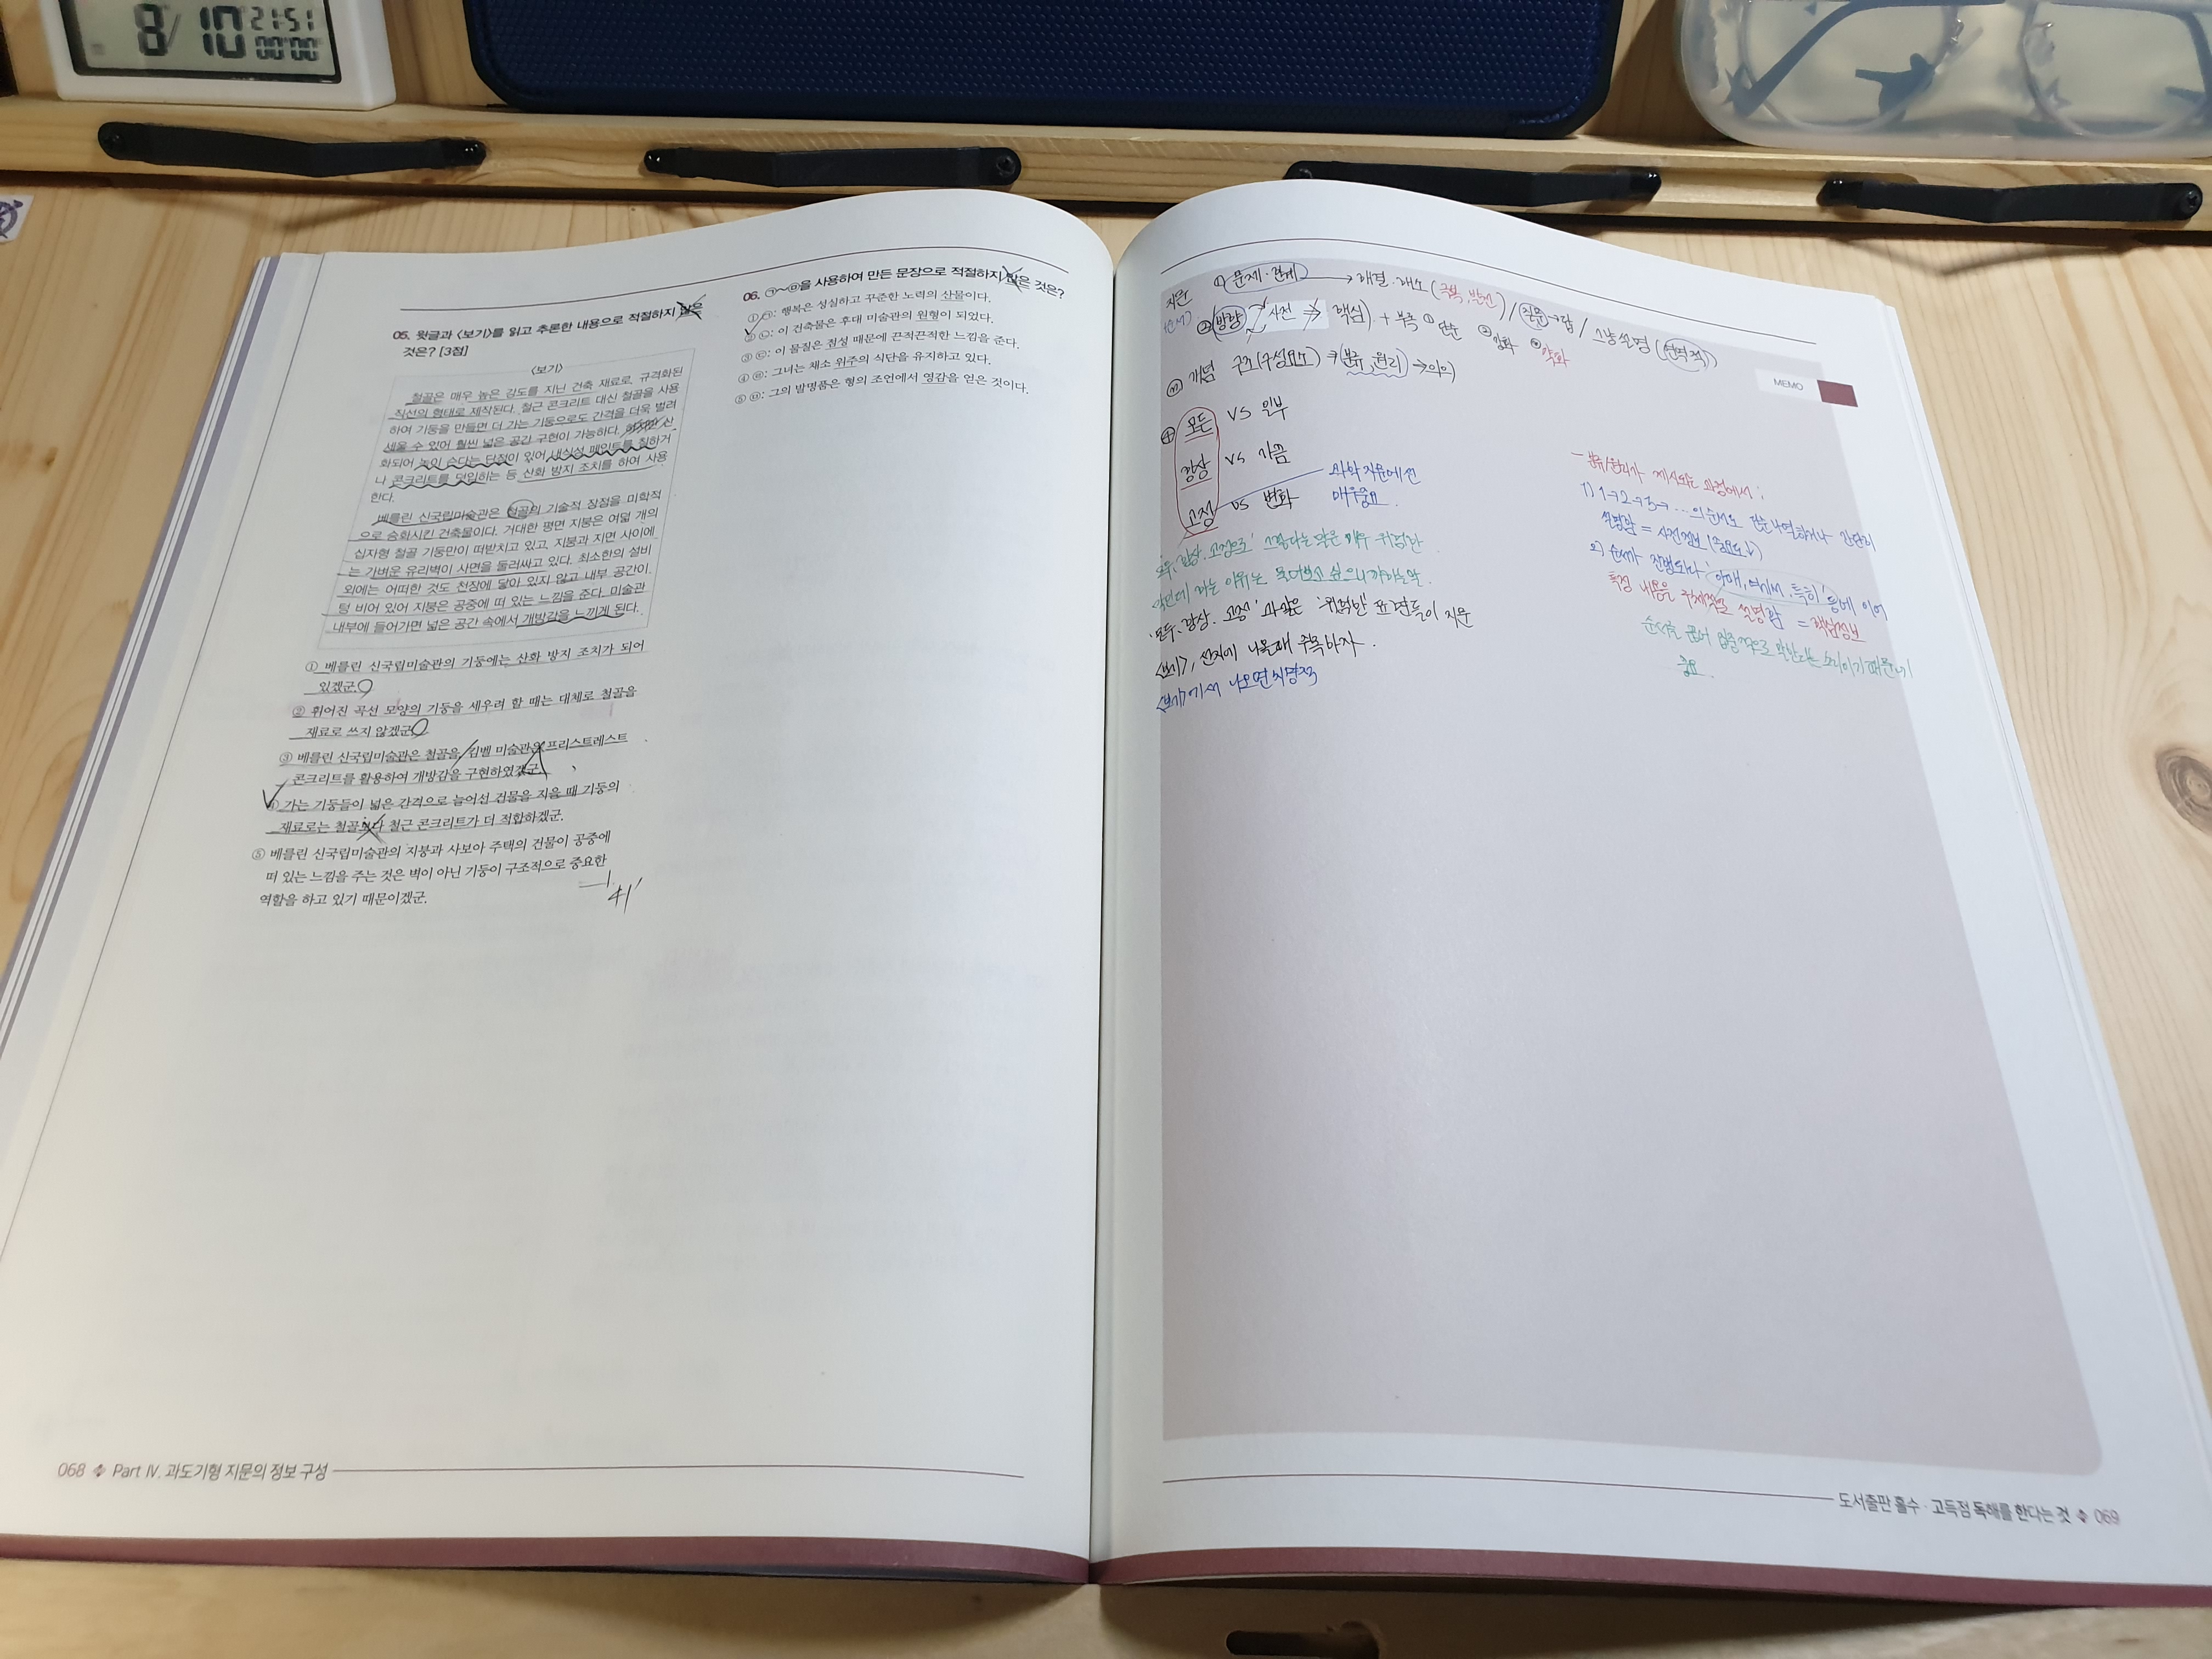 8/10 21:51
00'00"
05. 윗글과 <보기>를 읽고 추론한 내용으로 적절하지 않은
것은? [3점]
<보기>
철골은 매우 높은 강도를 지닌 건축 재료로, 규격화된
직선의 형태로 제작된다. 철근 콘크리트 대신 철골을 사용
하여 기둥을 만들면 더 가는 기둥으로도 간격을 더욱 벌려
세울 수 있어 훨씬 넓은 공간 구현이 가능하다. 하지만 산
화되어 녹이 슨다는 단점이 있어 내식성 페인트를 칠하거
나 콘크리트를 덧입히는 등 산화 방지 조치를 하여 사용
한다.
베를린 신국립미술관은 철골의 기술적 장점을 미학적
으로 승화시킨 건축물이다. 거대한 평면 지붕은 여덟 개의
십자형 철골 기둥만이 떠받치고 있고, 지붕과 지면 사이에
는 가벼운 유리벽이 사면을 둘러싸고 있다. 최소한의 설비
외에는 어떠한 것도 천장에 닿아 있지 않고 내부 공간이
텅 비어 있어 지붕은 공중에 떠 있는 느낌을 준다. 미술관
내부에 들어가면 넓은 공간 속에서 개방감을 느끼게 된다.
① 베를린 신국립미술관의 기둥에는 산화 방지 조치가 되어
있겠군.
② 휘어진 곡선 모양의 기둥을 세우려 할 때는 대체로 철골을
재료로 쓰지 않겠군.
③ 베를린 신국립미술관은 철골을, 킴벨 미술관은 프리스트레스트
콘크리트를 활용하여 개방감을 구현하였겠군.
④ 가는 기둥들이 넓은 간격으로 늘어선 건물을 지을 때 기둥의
재료로는 철골보다 철근 콘크리트가 더 적합하겠군.
⑤ 베를린 신국립미술관의 지붕과 사보아 주택의 건물이 공중에
떠 있는 느낌을 주는 것은 벽이 아닌 기둥이 구조적으로 중요한
역할을 하고 있기 때문이겠군.
06. ㉠~㉤을 사용하여 만든 문장으로 적절하지 않은 것은?
① ㉠: 행복은 성실하고 꾸준한 노력의 산물이다.
② ㉡: 이 건축물은 후대 미술관의 원형이 되었다.
③ ㉢: 이 물질은 점성 때문에 끈적끈적한 느낌을 준다.
④ ㉣: 그녀는 채소 위주의 식단을 유지하고 있다.
⑤ ㉤: 그의 발명품은 형의 조언에서 영감을 얻은 것이다.
068 Part Ⅳ. 과도기형 지문의 정보 구성
지문 1) 문제·한계 → 해결·해소 (극복, 발전) / 질문→답 / 그냥 설명 (선택적)
② 방향 사전 ⇒ 핵심) + 부족 ① 단순 ② 강화 ③ 약화
③ 개념 구조(구성요소) (분류, 원리) → 의의)
MEMO
④ 모든 vs 일부
항상 vs 가끔
고정 vs 변화
과학 지문에선
매우중요
모두, 항상, 고정으로' 그렇다는 말은 매우 위험한
말인데 하는 이유는 묻더보고 싶으니까하는말.
'모두, 항상, 고정'과 같은 '위험한' 표현들이 지문
<보기>, 선지에 나올때 주목하자.
<보기>에서 나오면 치명적
- 분류/원리가 제시되는 과정에서;
1) 1→2→3→ …의 순서로 단순나열하거나 간단히
설명함 = 사전정보 (중요도↓)
2) 순서가 진행되다 '이때, 여기서, 특히' 등에 이어
특정 내용을 구체적으로 설명함 = 핵심정보
순서를 끊어 집중적으로 말한다는 소리이기 때문에
중요.
도서출판 홀수 · 고득점 독해를 한다는 것 069